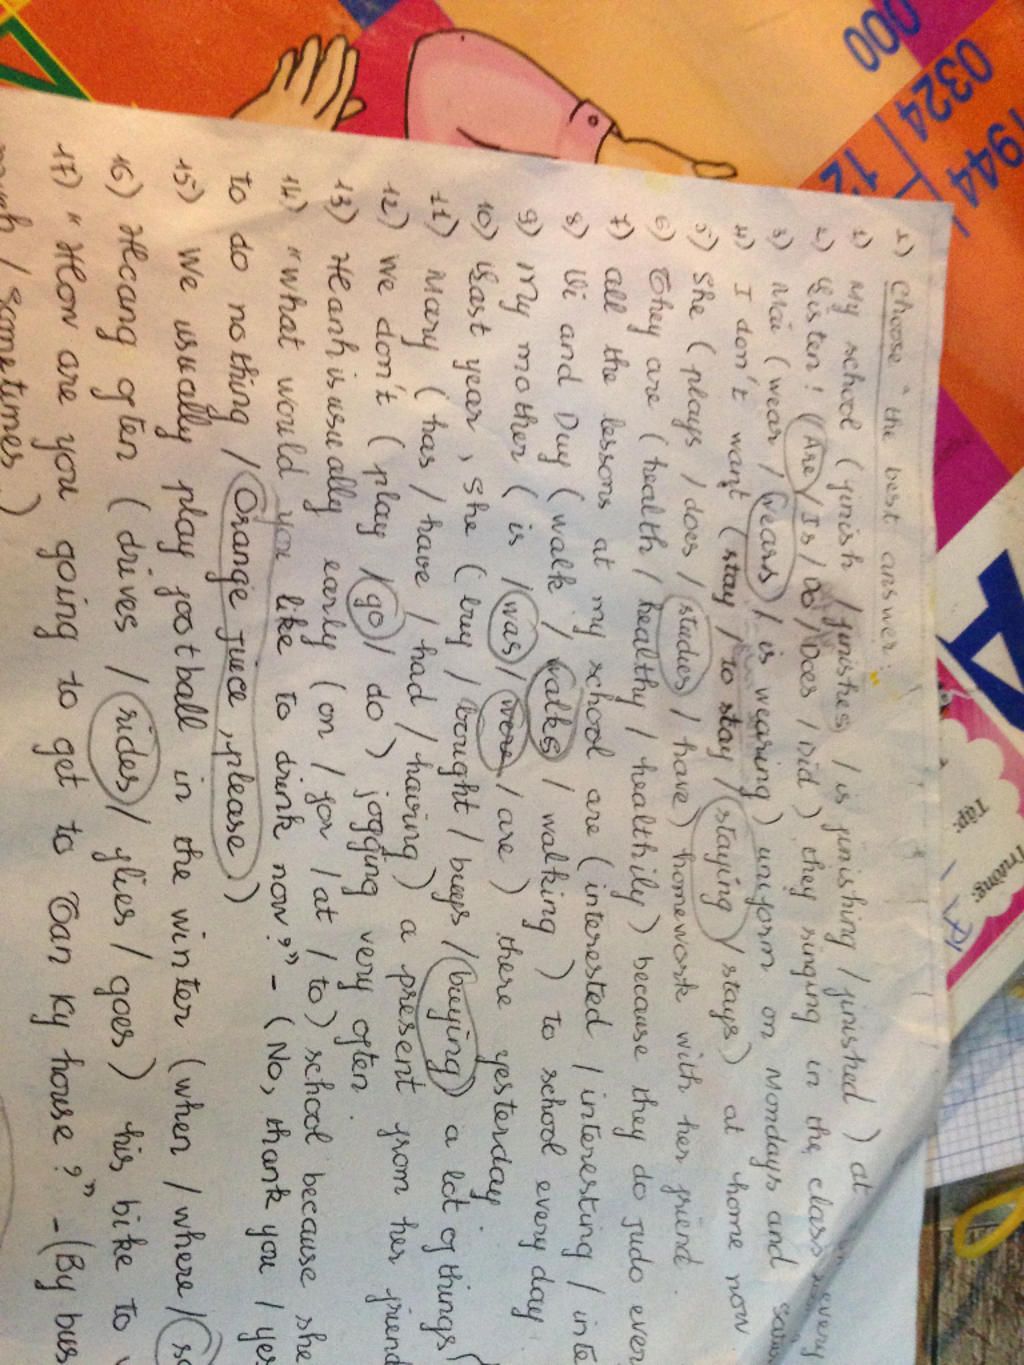 I) Choose "the best answer:"
1) My school (finish / finishes / is finishing / finished) at
2) Listen! (Are / Is / Do / Does / Did) they singing in the class every
3) Mai (wear / wears / is wearing) uniform on Mondays and
4) I don't want (stay / to stay / staying / stays) at home now
5) She (plays / does / studies / have) homework with her friend.
6) They are (health / healthy / healthily) because they do judo ever
7) all the lessons at my school are (interested / interesting / inte
8) Vi and Duy (walk / walks / walking) to school every day.
9) My mother (is / was / were / are) there yesterday
10) Last year, she (buy / bought / buys / buying) a lot of things
11) Mary (has / have / had / having) a present from her friend
12) We don't (play / go / do) jogging very often.
13) Hanh is usually early (on / for / at / to) school because she
14) "What would you like to drink now?" - (No, thank you / yes
to do nothing / Orange juice, please)
15) We usually play football in the winter (when / where / so
16) Hoang often (drives / rides / flies / goes) his bike to
17) "How are you going to get to Tan Ky house?" - (By bus
/ sometimes)
000
0324
1944
12
A
Tập:
Trường: